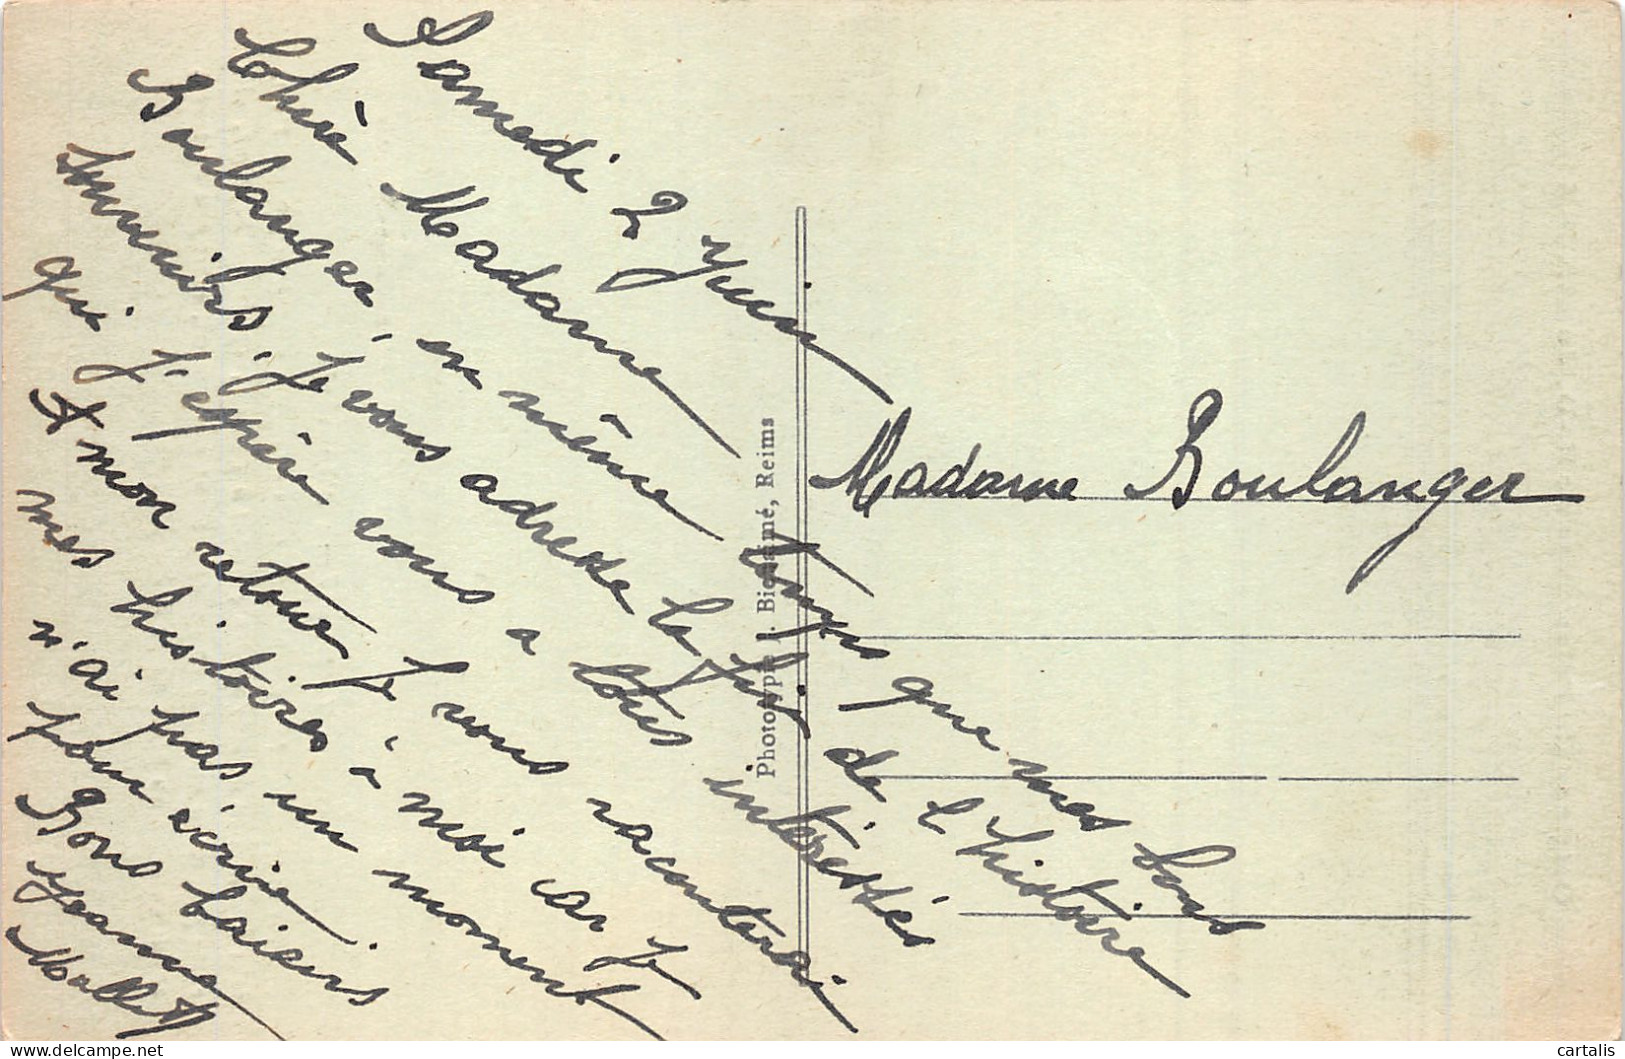 Samedi 2 Juin
Chère Madame
Boulanger, en même temps que mes bons
souvenirs, je vous adresse la fin de l'histoire
qui j'espère vous a tous intéressés
A mon retour je vous raconterai
mes histoires à moi car je
n'ai pas un moment
pour écrire
Bons baisers
Jeanne
Mallet
Madame Boulanger
Phototypie J. Bienaimé, Reims
cartalis
delcampe.net